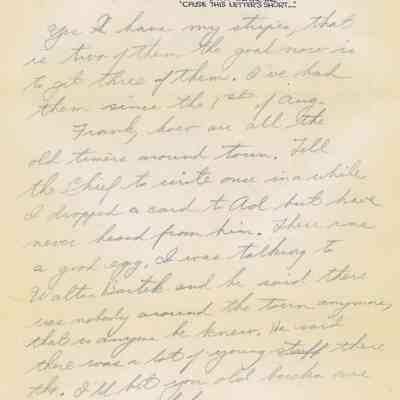 'CAUSE THIS LETTER'S SHORT..."
Yes I have my stripes, that
is two of them the goal now is
to get three of them. I've had
them since the 1st of Aug.
Frank, how are all the
old timers around town. Tell
the Chief to write once in a while
I dropped a card to Aol but have
never heard from him. There was
a good egg. I was talking to
Walter and he said there
was nobody around the town anymore,
that is anyone he knew. He said
there was a lot of young stuff there
tho. I'll bet you old bucks are